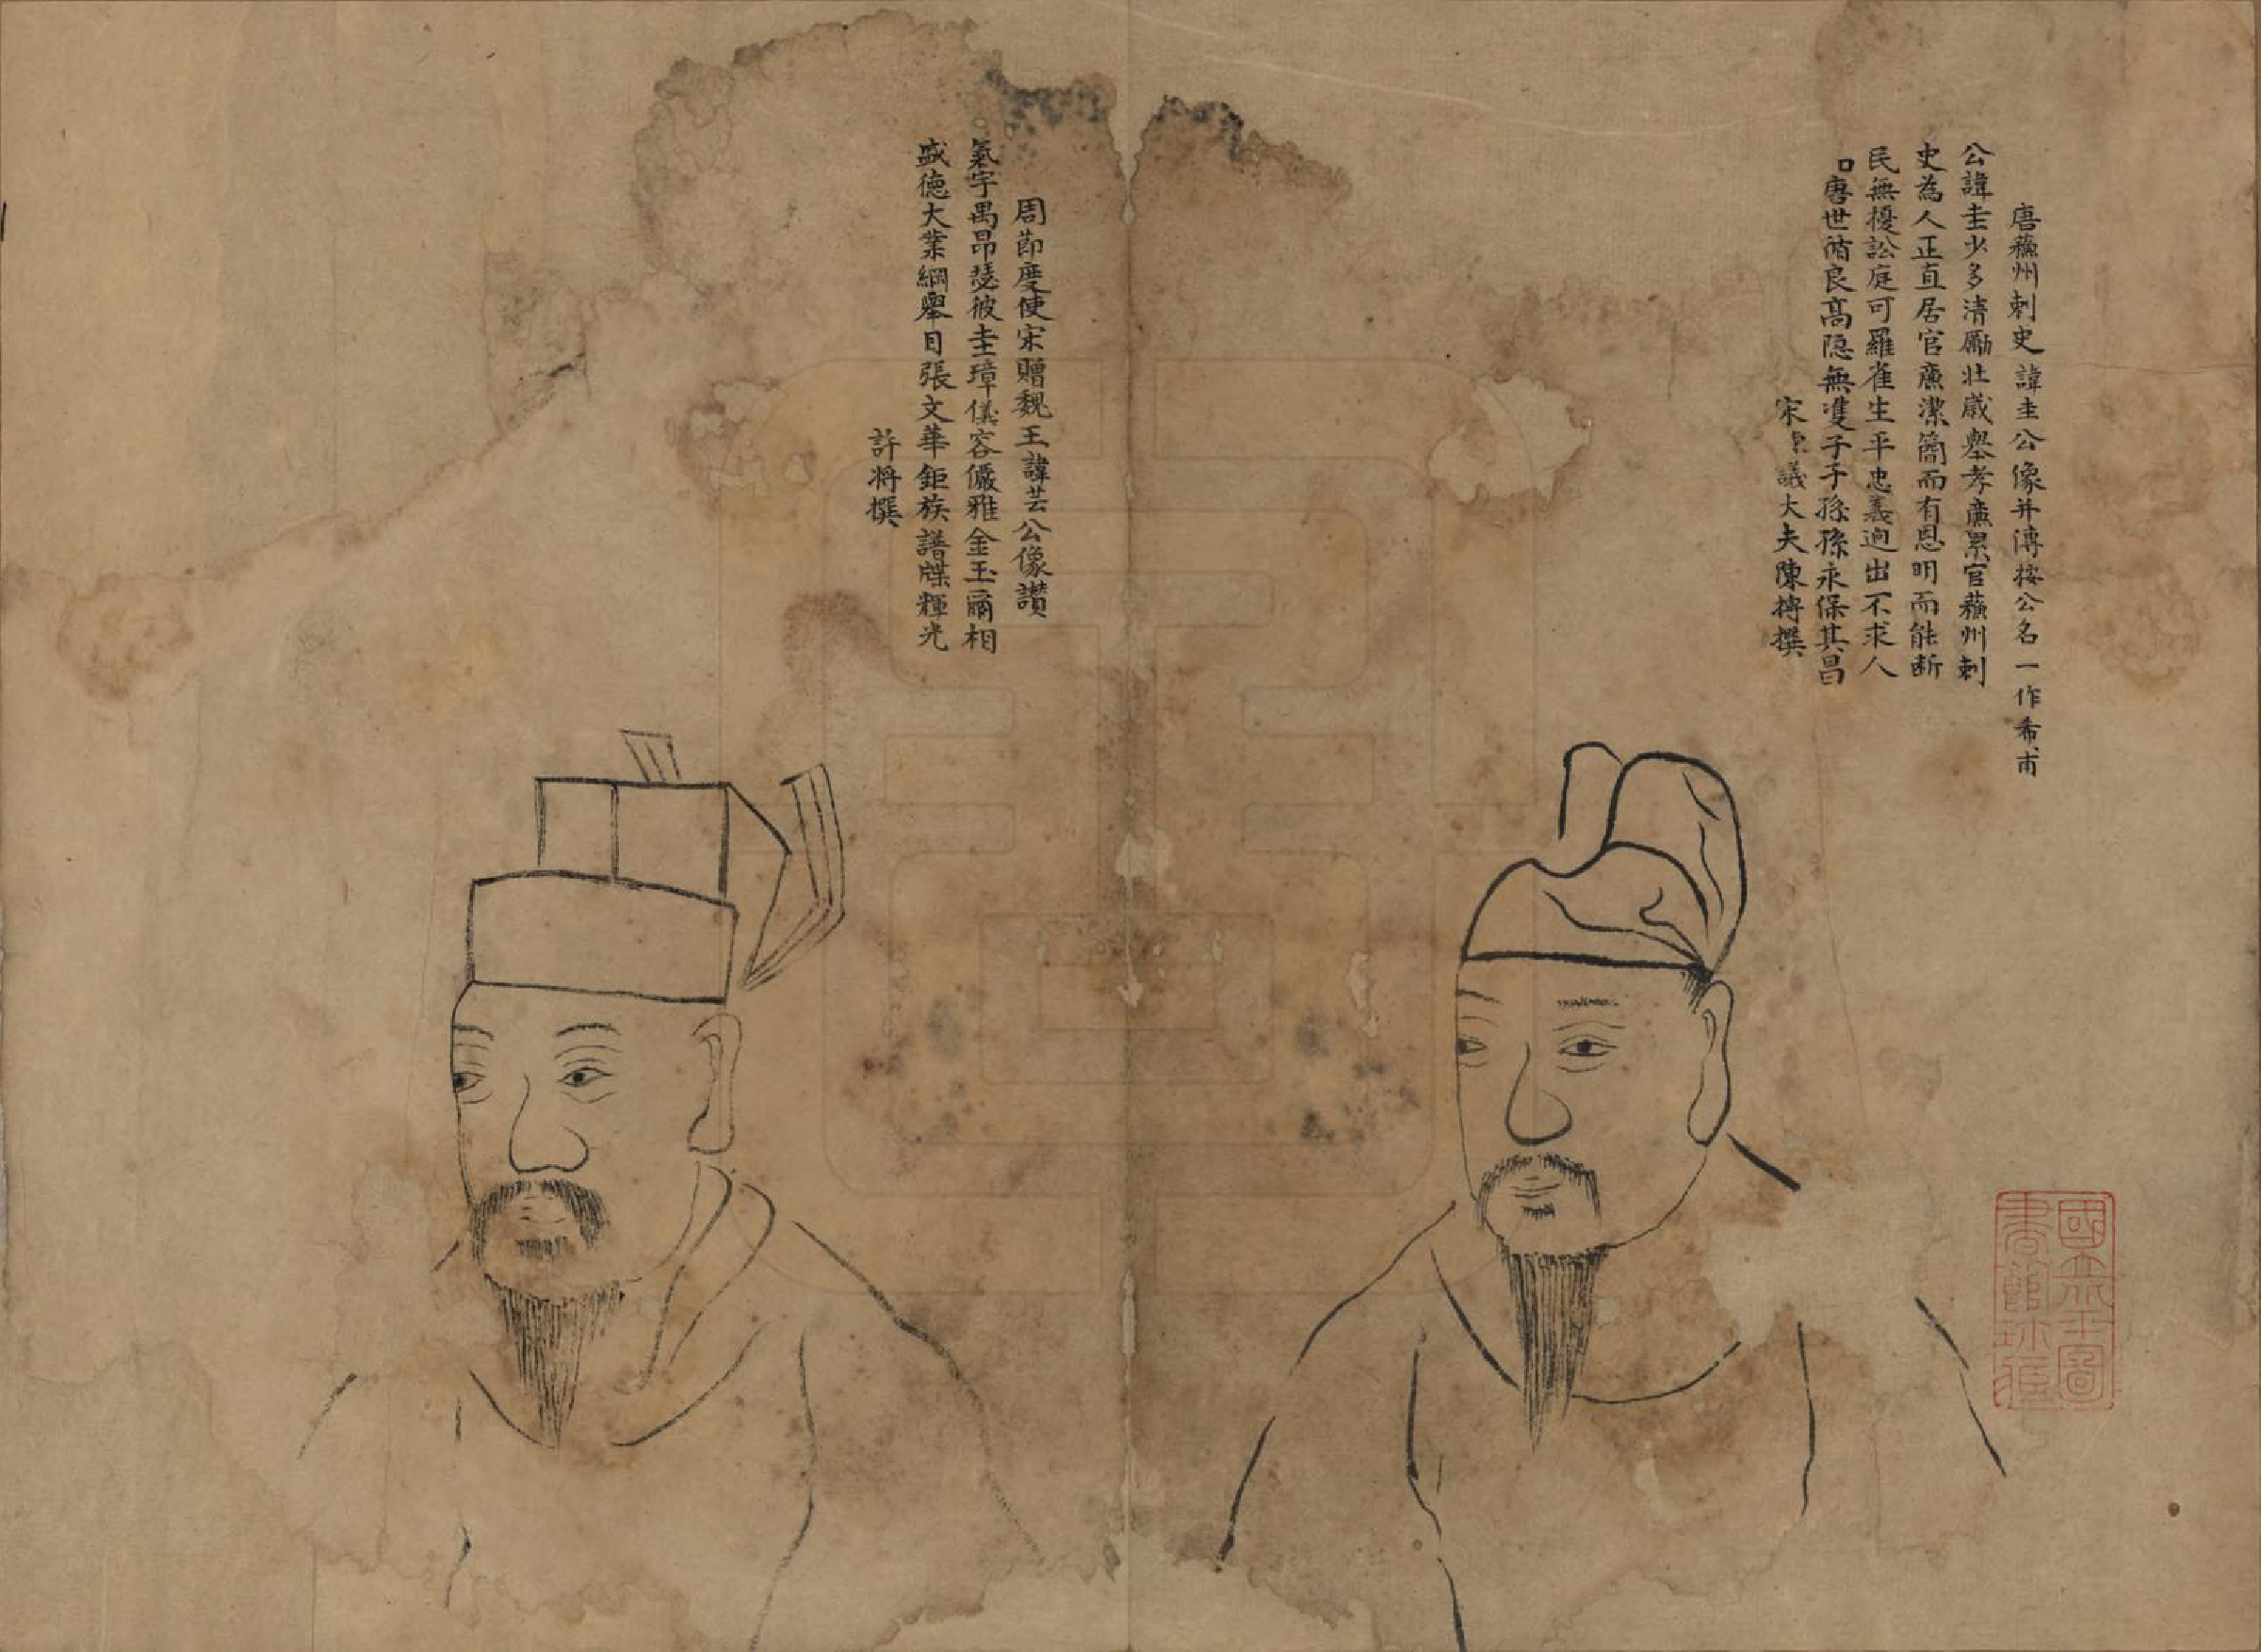 唐蘓州刺史諱圭公像并傳按公名一作希甫
公諱圭少多清勵壯歲舉孝廉累官蘓州刺
史為人正直居官廉潔簡而有恩明而能斷
民無擾訟庭可羅雀生平忠義逈出不求人
口唐世循良髙隠無雙子子孫孫永保其昌
宋 議大夫陳摶撰
周節度使宋贈魏王諱芸公像讃
氣宇禺昂瑟彼圭璋儀容儼雅金玉爾相
盛德大業綱舉目張文華鉅族譜牒輝光
許将撰
國立北平圖
書館珍藏